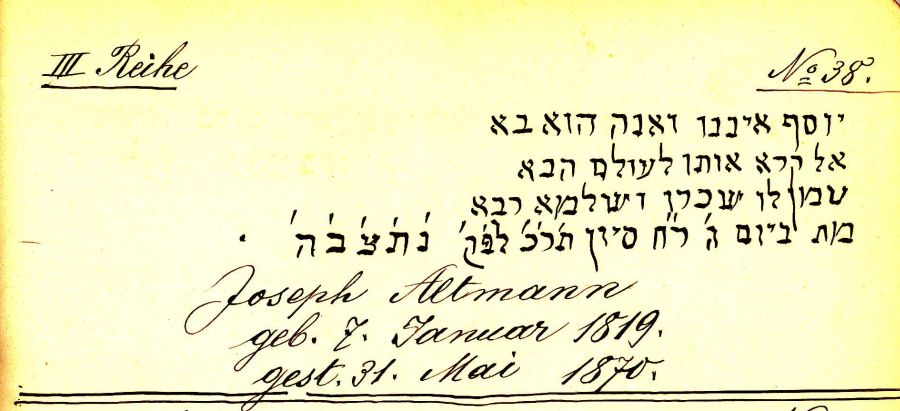 III Reihe
No 38.
יוסף איננו ואנה הוא בא
אל קרא אותו לעולם הבא
טמון לו שכרו ושלמא רבא
מת ביום ג' ר"ח סיון ת'ר'ל' לפ"ק נ'ת'צ'ב'ה'
Joseph Altmann
geb. 7. Januar 1819.
gest. 31. Mai 1870.